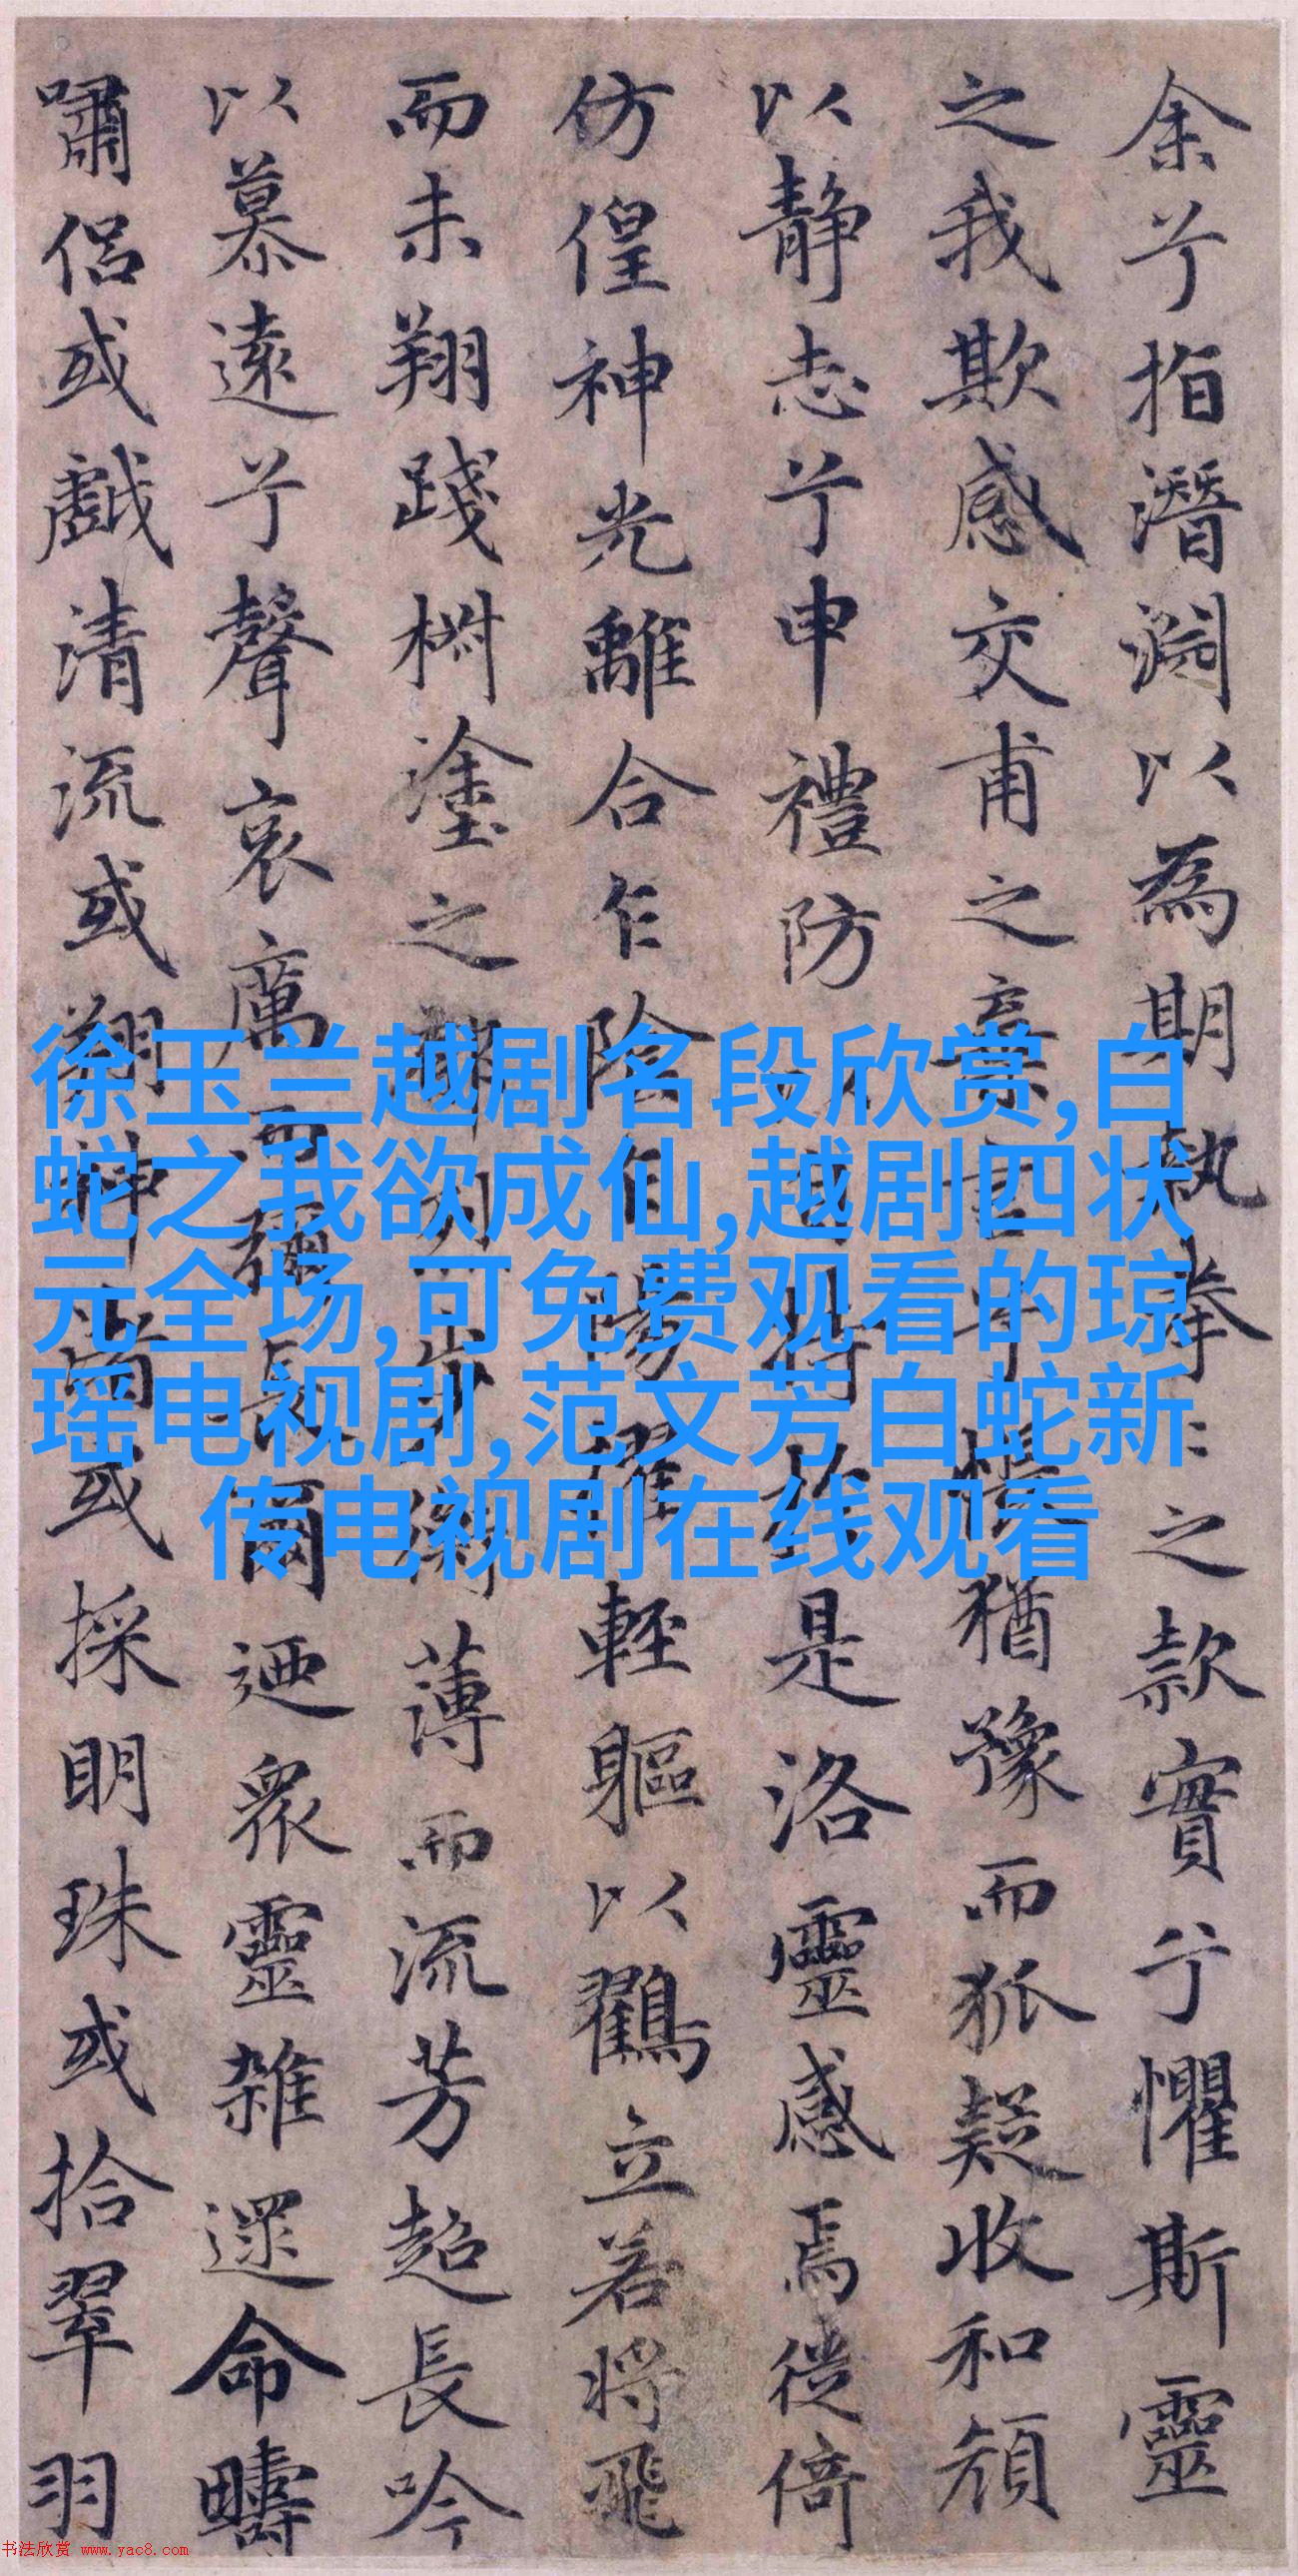 余兮指潛淵以為期執拳〻之款實兮懼斯靈
之我欺感交甫之棄言兮悵猶豫而狐疑收和顏
以靜志兮申禮防以自持於是洛靈感焉徙倚
仿偟神光離合乍陰乍陽擢輕軀以鶴立若將飛
而未翔踐椒塗之郁烈步蘅薄而流芳超長吟
以慕遠兮聲哀厲而彌長爾迺衆靈雜遝命疇
嘯侶或戲清流或翔神渚或採明珠或拾翠羽
徐玉兰越剧名段欣赏,白
蛇之我欲成仙,越剧四状
元全场,可免费观看的琼
瑶电视剧,范文芳白蛇新
传电视剧在线观看
书法欣赏 www.yac8.com